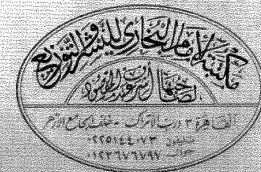 مكتبة الإمام البخاري للنشر والتوزيع
لصاحبها أسعد المقصود
القاهرة ٣ درب الأتراك - خلف الجامع الأزهر
تليفون ٠٢٢٥١٤٤٠٧٣
جوال ٠١٢٣٦٧٦٧٩٧